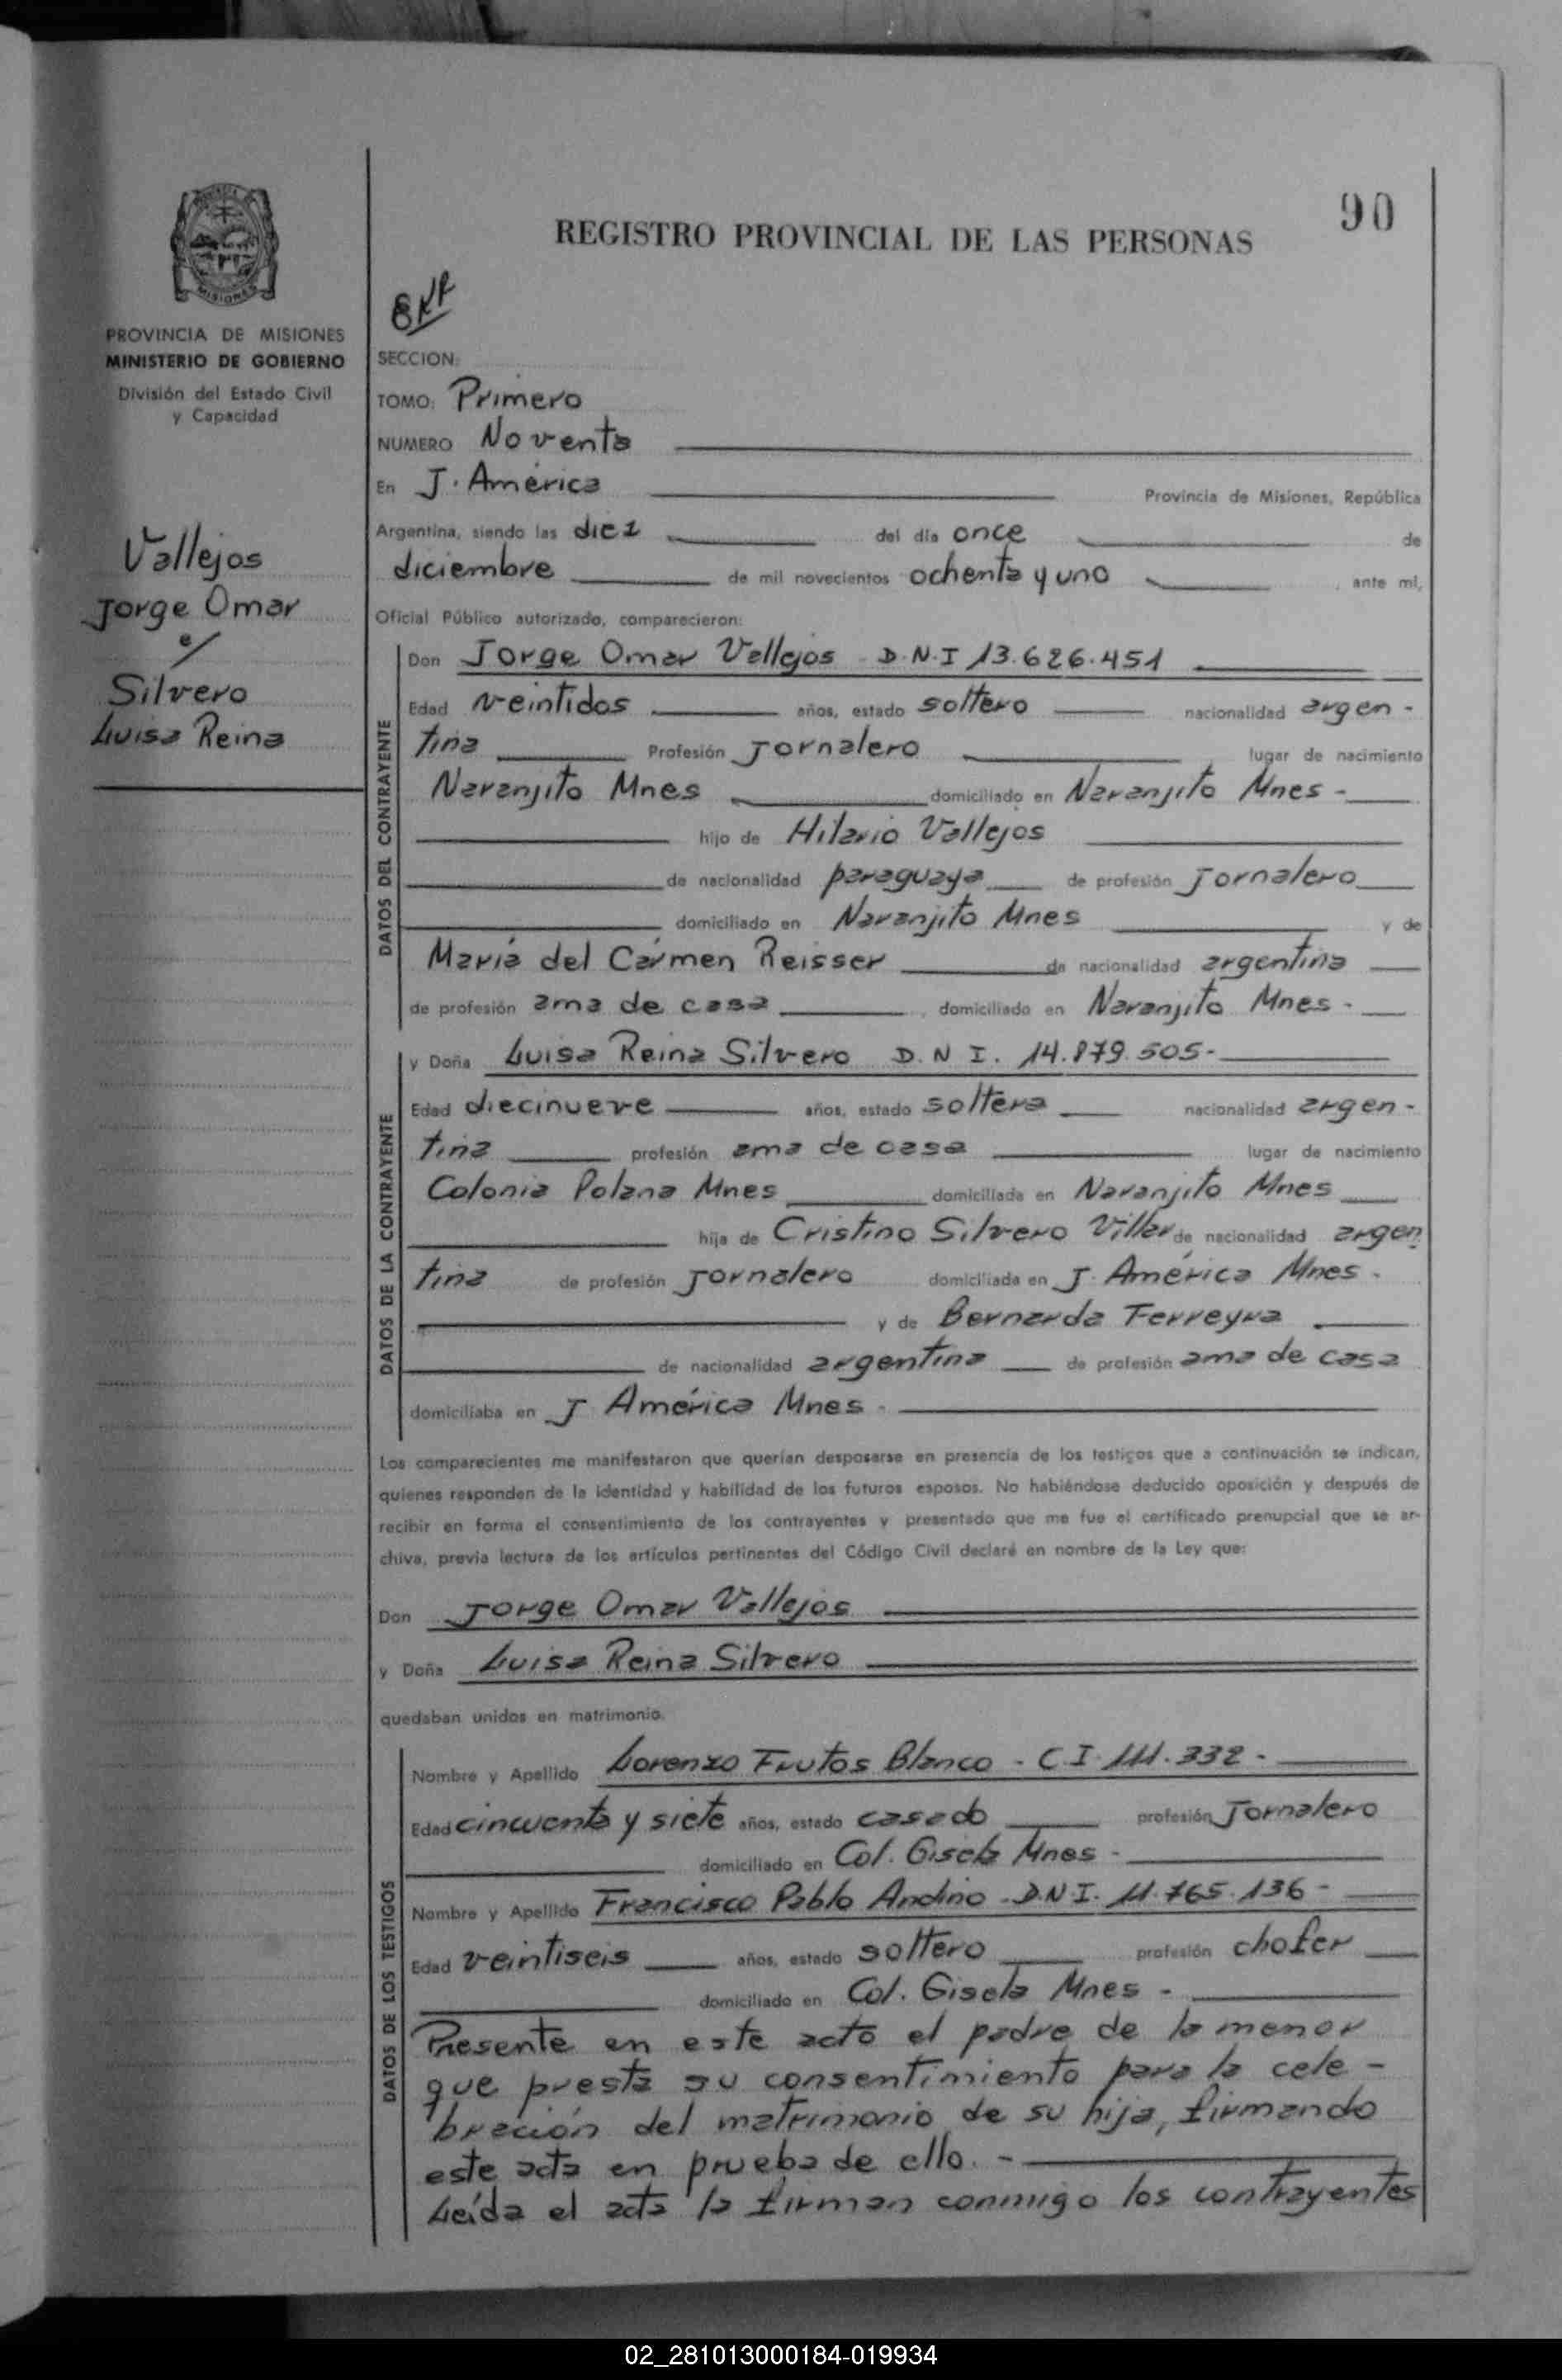 90
REGISTRO PROVINCIAL DE LAS PERSONAS
MISIONES
PROVINCIA DE MISIONES
MINISTERIO DE GOBIERNO
División del Estado Civil
y Capacidad
Vallejos
Jorge Omar
c/
Silvero
Luisa Reina
SECCION:
TOMO: Primero
NUMERO Noventa
En J. América Provincia de Misiones, República
Argentina, siendo las diez del día once de
diciembre de mil novecientos ochenta y uno, ante mí,
Oficial Público autorizado, comparecieron:
DATOS DEL CONTRAYENTE
Don Jorge Omar Vallejos D.N.I 13.626.451
Edad veintidos años, estado soltero nacionalidad argen-
tina Profesión Jornalero lugar de nacimiento
Naranjito Mnes domiciliado en Naranjito Mnes -
hijo de Hilario Vallejos
de nacionalidad paraguaya de profesión Jornalero
domiciliado en Naranjito Mnes y de
María del Cármen Reisser de nacionalidad argentina
de profesión ama de casa, domiciliada en Naranjito Mnes -
DATOS DE LA CONTRAYENTE
y Doña Luisa Reina Silvero D. N I. 14.879.505-
Edad diecinueve años, estado soltera nacionalidad argen-
tina profesión ama de casa lugar de nacimiento
Colonia Polana Mnes domiciliada en Naranjito Mnes
hija de Cristino Silvero Villar de nacionalidad argen
tina de profesión Jornalero domiciliada en J. América Mnes -
y de Bernarda Ferreyra
de nacionalidad argentina de profesión ama de casa
domiciliaba en J América Mnes -
Los comparecientes me manifestaron que querían desposarse en presencia de los testigos que a continuación se indican,
quienes responden de la identidad y habilidad de los futuros esposos. No habiéndose deducido oposición y después de
recibir en forma el consentimiento de los contrayentes y presentado que me fue el certificado prenupcial que se ar-
chiva, previa lectura de los artículos pertinentes del Código Civil declaré en nombre de la Ley que:
Don Jorge Omar Vallejos
y Doña Luisa Reina Silvero
quedaban unidos en matrimonio.
DATOS DE LOS TESTIGOS
Nombre y Apellido Lorenzo Frutos Blanco - C.I. 111.332 -
Edad cincuenta y siete años, estado casado profesión Jornalero
domiciliado en Col. Gisela Mnes -
Nombre y Apellido Francisco Pablo Andino - D.N.I. 11.765.136 -
Edad veintiseis años, estado soltero profesión chofer
domiciliado en Col. Gisela Mnes -
Presente en este acto el padre de la menor
que presta su consentimiento para la cele-
bración del matrimonio de su hija, firmando
este acta en prueba de ello. -
Leída el acta la firman conmigo los contrayentes
02_281013000184-019934